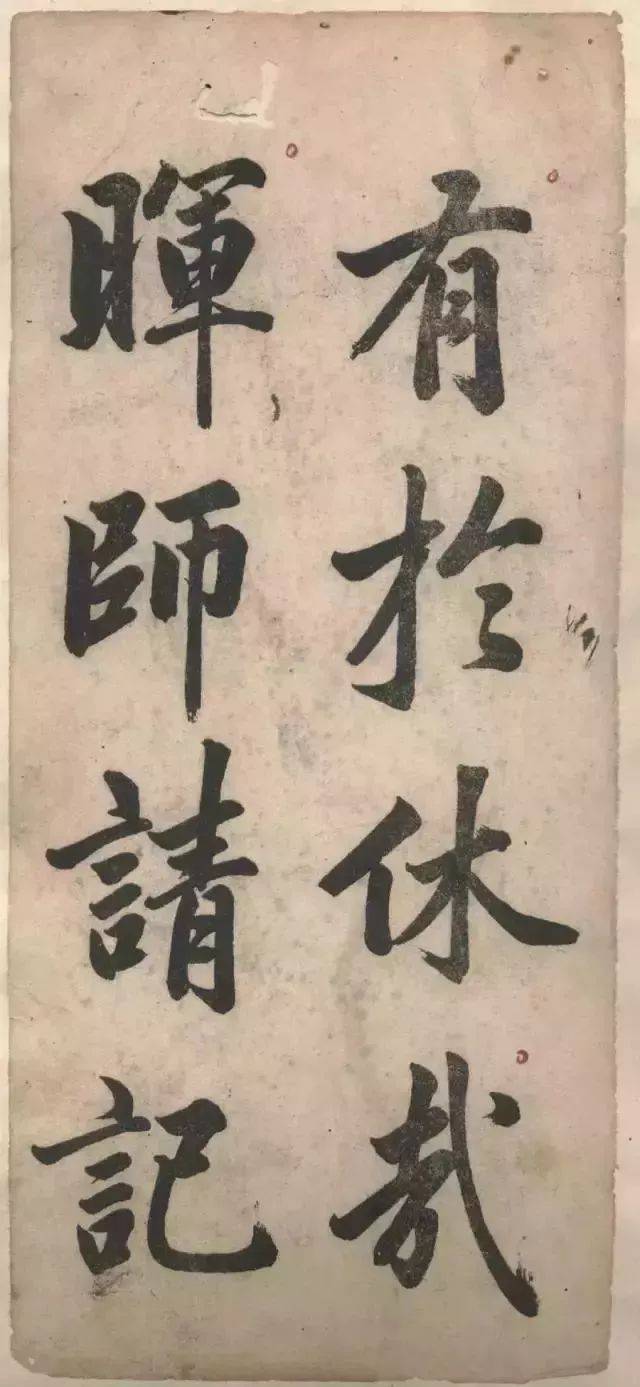 有於休哉
暉師請記